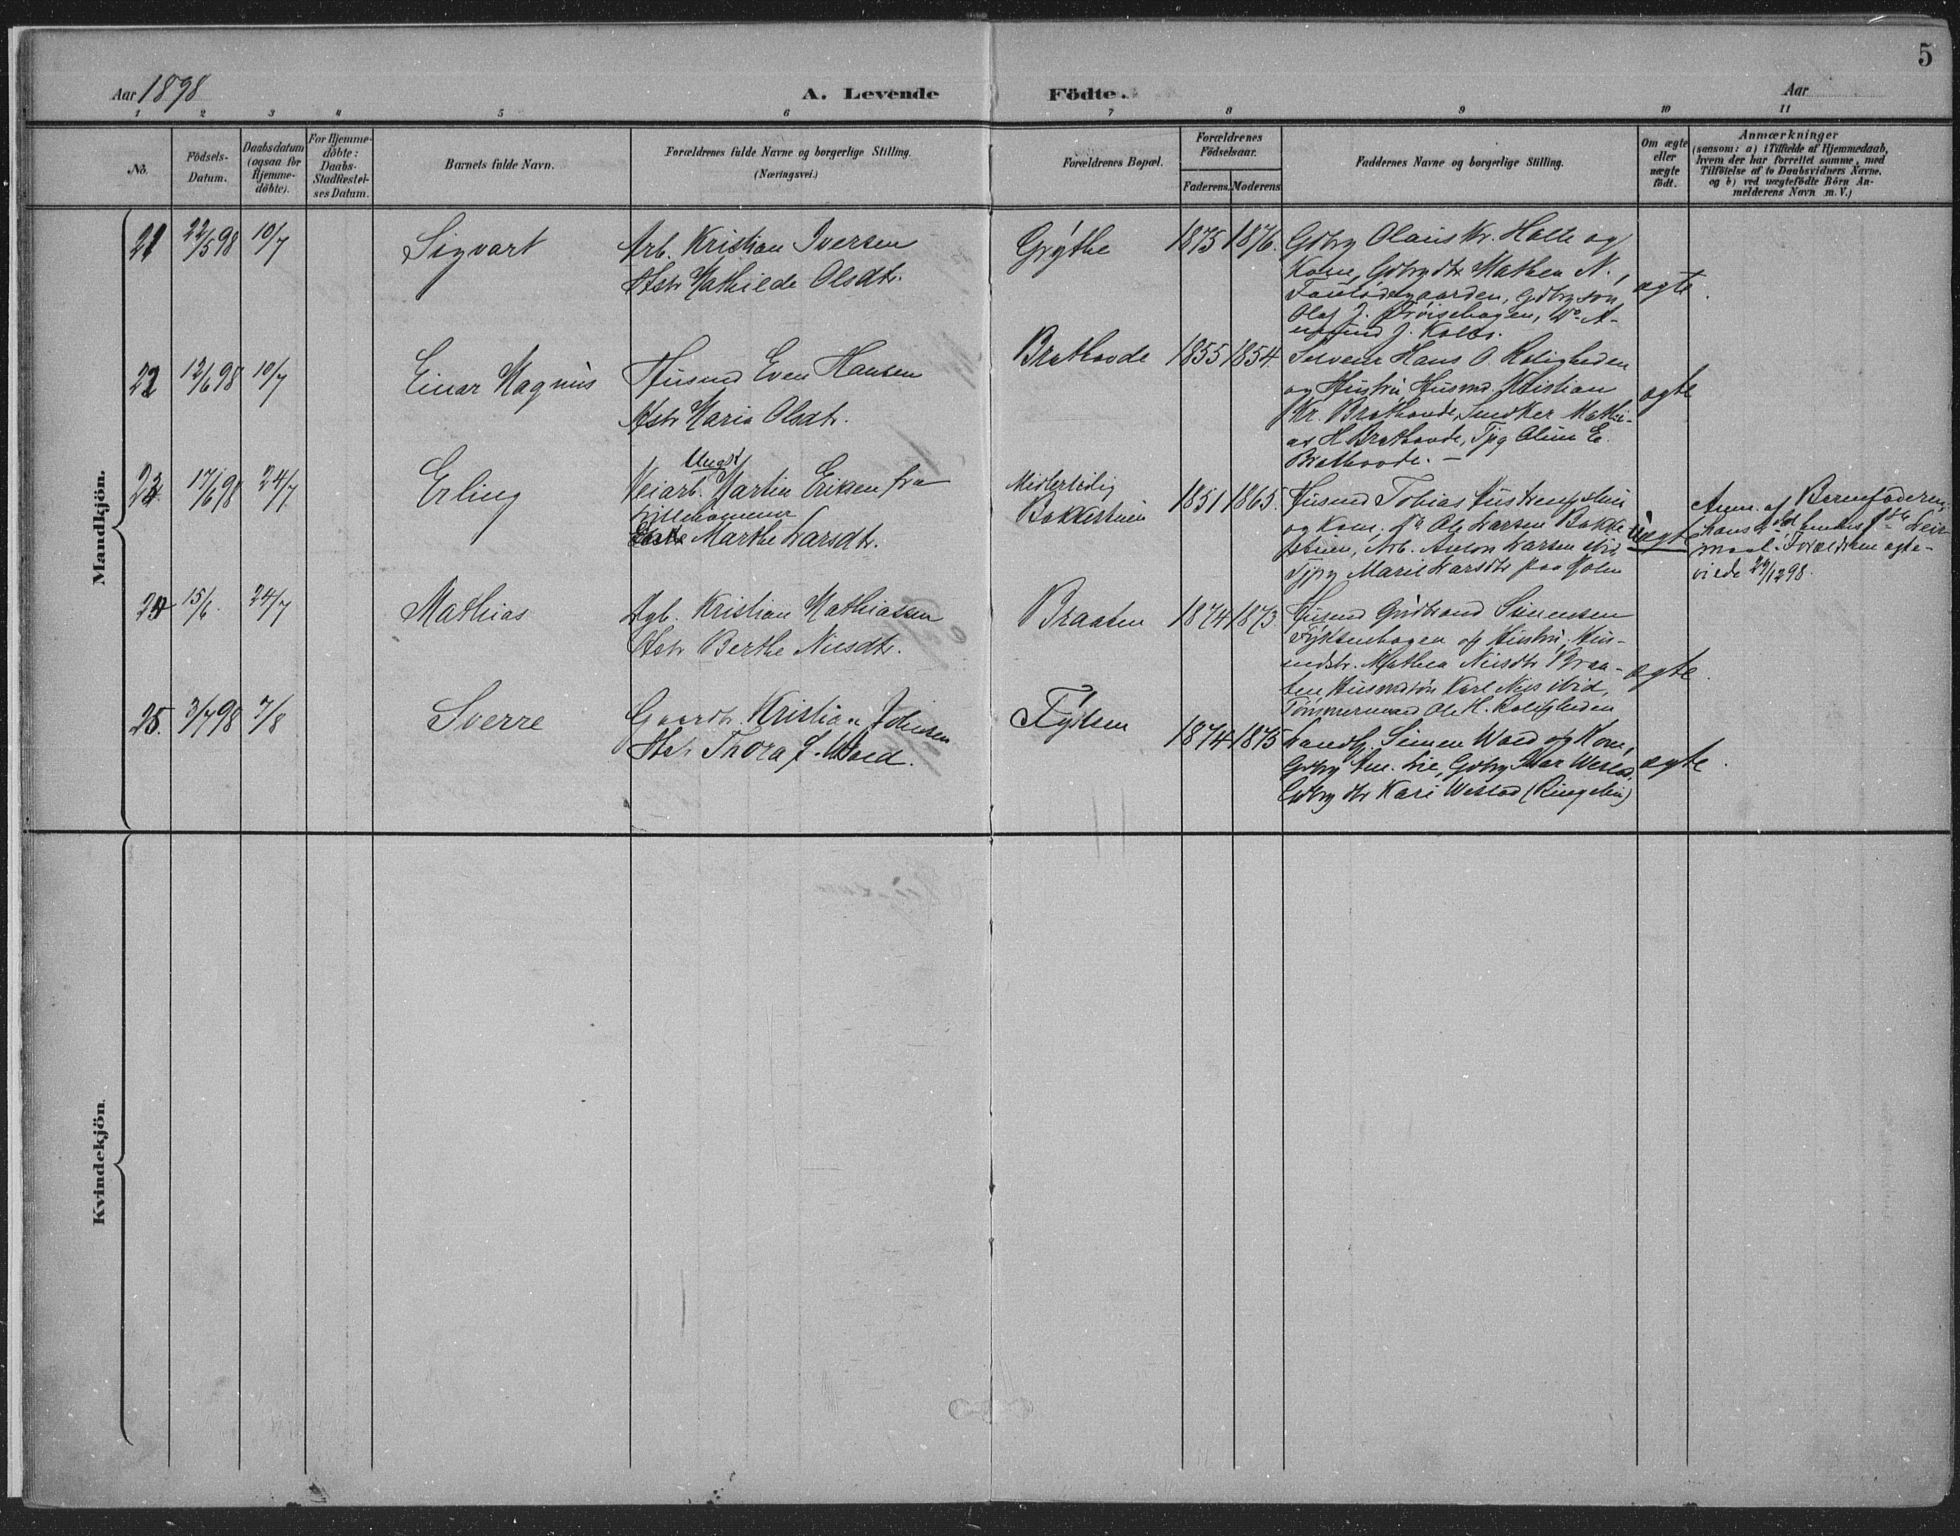 5
Aar 1898
A. Levende Födte.
Aar
1 2 3 4 5 6 7 8 9 10 11
No.
Födsels-Datum.
Daabsdatum (ogsaa for Hjemme-döbte).
For Hjemme-döbte: Daabs-Stadfæstel-ses Datum.
Barnets fulde Navn.
Forældrenes fulde Navne og borgerlige Stilling.
(Næringsvei.)
Forældrenes Bopæl.
Forældrenes Födselsaar.
Faderens. Moderens.
Faddernes Navne og borgerlige Stilling.
Om ægte eller uægte födt.
Anmærkninger
(saasom: a) i Tilfælde af Hjemmedaab,
hvem der har forrettet samme, med
Tilföielse af to Daabsvidners Navne,
og b) ved uægtefödte Börn An-
melderens Navn m. V.)
Mandkjön.
21 22/5 98 10/7 Sigvart
Arb. Kristian Iversen
Hstr Mathilde Olsdtr.
Grythe 1875 1876.
Gdbrg Olaus Kr. Holte og
Kone, Gdbrgdtr Mathea N.
Gdbrg søn
Olaf J.
J. Kolbs.
ægte.
22 12/6 98 10/7 Einar Magnus
Husmd Even Hansen
Hstr Maria Olsdtr.
Brathovde 1855 1854.
Selveier Hans O. Roligheden
og Hustru, Husmd. Kristian
Kr. Brathovde, Snedker Mathi-
as H. Brathovde, Tjpg Oline E.
Brathovde. —
ægte
23 17/6 98 24/7 Erling
Ungk
Veiarb. Martin Eriksen fra
Lillehammer
Marthe Larsdtr.
Midlertidig
Bakkestuen 1851 1865.
Husmd Tobias
og Kone, Ole Larsen Bakke-
stuen, Arb. Anton Larsen ibid,
Tjpg Marie Larsdtr paa
Uægte
Anm. af Barnefaderen,
hans hendes Leier-
maal. Forældrene ægte-
viede 29/12 98.
24 15/6. 24/7 Mathias
Kristian Mathiasen
Hstr Berthe Nilsdtr.
Braaten 1874 1873.
Husmd Gudbrand Simensen
Fyksenhagen og Hustru, Hus-
mdstr. Mathea Nilsdtr Braa-
ten Husmdsøn Karl Nils ibid,
Tømmermand Ole H. Roligheden
ægte.
25. 3/7 98 7/8 Sverre
Gaardbr. Kristian Johnsen
Hstr Thora J. Wold.
Fyksen 1874 1875
Landh. Simen Wold og Kone,
Gdbrg Lie, Gdbrg Westad,
Gdbrg dtr Kari Westad
ægte.
Kvindekjön.